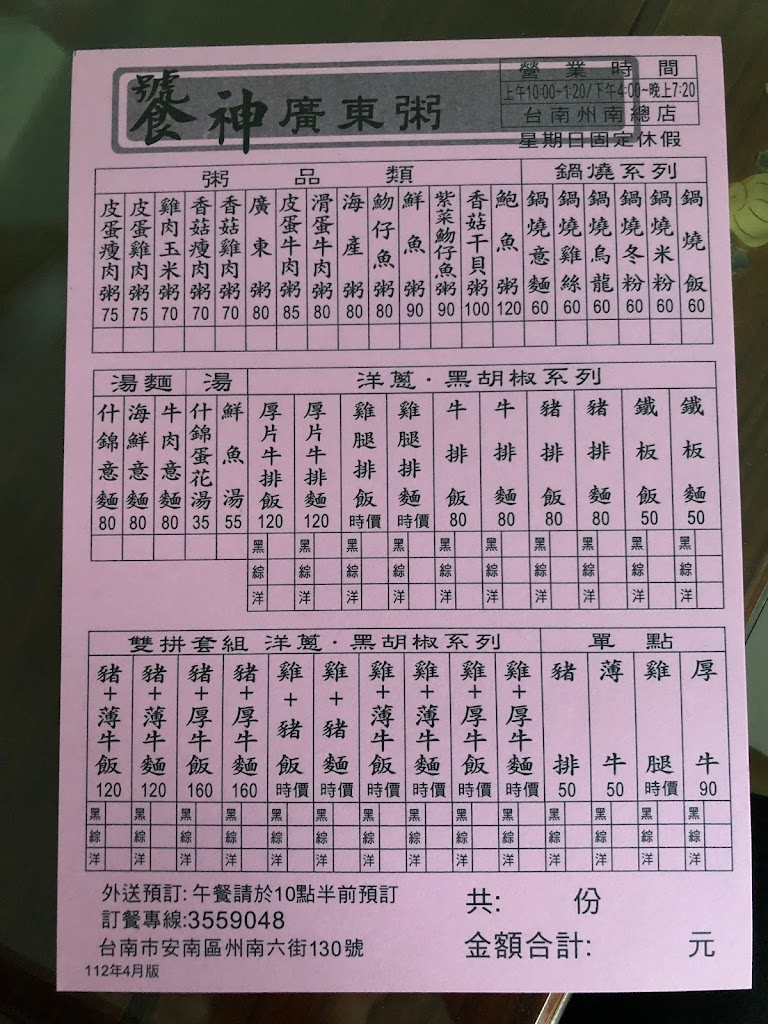 饕神廣東粥
營業時間
上午10:00-1:20/下午4:00~晚上7:20
台南州南總店
星期日固定休假
粥品類
鍋燒系列
皮蛋瘦肉粥 75
皮蛋雞肉粥 75
雞肉玉米粥 70
香菇瘦肉粥 70
香菇雞肉粥 70
廣東粥 80
皮蛋牛肉粥 85
滑蛋牛肉粥 80
海產粥 80
魩仔魚粥 80
鮮魚粥 90
紫菜魩仔魚粥 90
香菇干貝粥 100
鮑魚粥 120
鍋燒意麵 60
鍋燒雞絲 60
鍋燒烏龍 60
鍋燒冬粉 60
鍋燒米粉 60
鍋燒飯 60
湯麵
湯
洋蔥·黑胡椒系列
什錦意麵 80
海鮮意麵 80
牛肉意麵 80
什錦蛋花湯 35
鮮魚湯 55
厚片牛排飯 120
厚片牛排麵 120
雞腿排飯 時價
雞腿排麵 時價
牛排飯 80
牛排麵 80
豬排飯 80
豬排麵 80
鐵板飯 50
鐵板麵 50
黑 黑 黑 黑 黑 黑 黑 黑 黑 黑
綜 綜 綜 綜 綜 綜 綜 綜 綜 綜
洋 洋 洋 洋 洋 洋 洋 洋 洋 洋
雙拼套組 洋蔥·黑胡椒系列
單點
豬+薄牛飯 120
豬+薄牛麵 120
豬+厚牛飯 160
豬+厚牛麵 160
雞+豬飯 時價
雞+豬麵 時價
雞+薄牛飯 時價
雞+薄牛麵 時價
雞+厚牛飯 時價
雞+厚牛麵 時價
豬排 50
薄牛 50
雞腿 時價
厚牛 90
黑 黑 黑 黑 黑 黑 黑 黑 黑 黑 黑 黑 黑 黑
綜 綜 綜 綜 綜 綜 綜 綜 綜 綜 綜 綜 綜 綜
洋 洋 洋 洋 洋 洋 洋 洋 洋 洋 洋 洋 洋 洋
外送預訂: 午餐請於10點半前預訂
訂餐專線:3559048
台南市安南區州南六街130號
112年4月版
共: 份
金額合計: 元